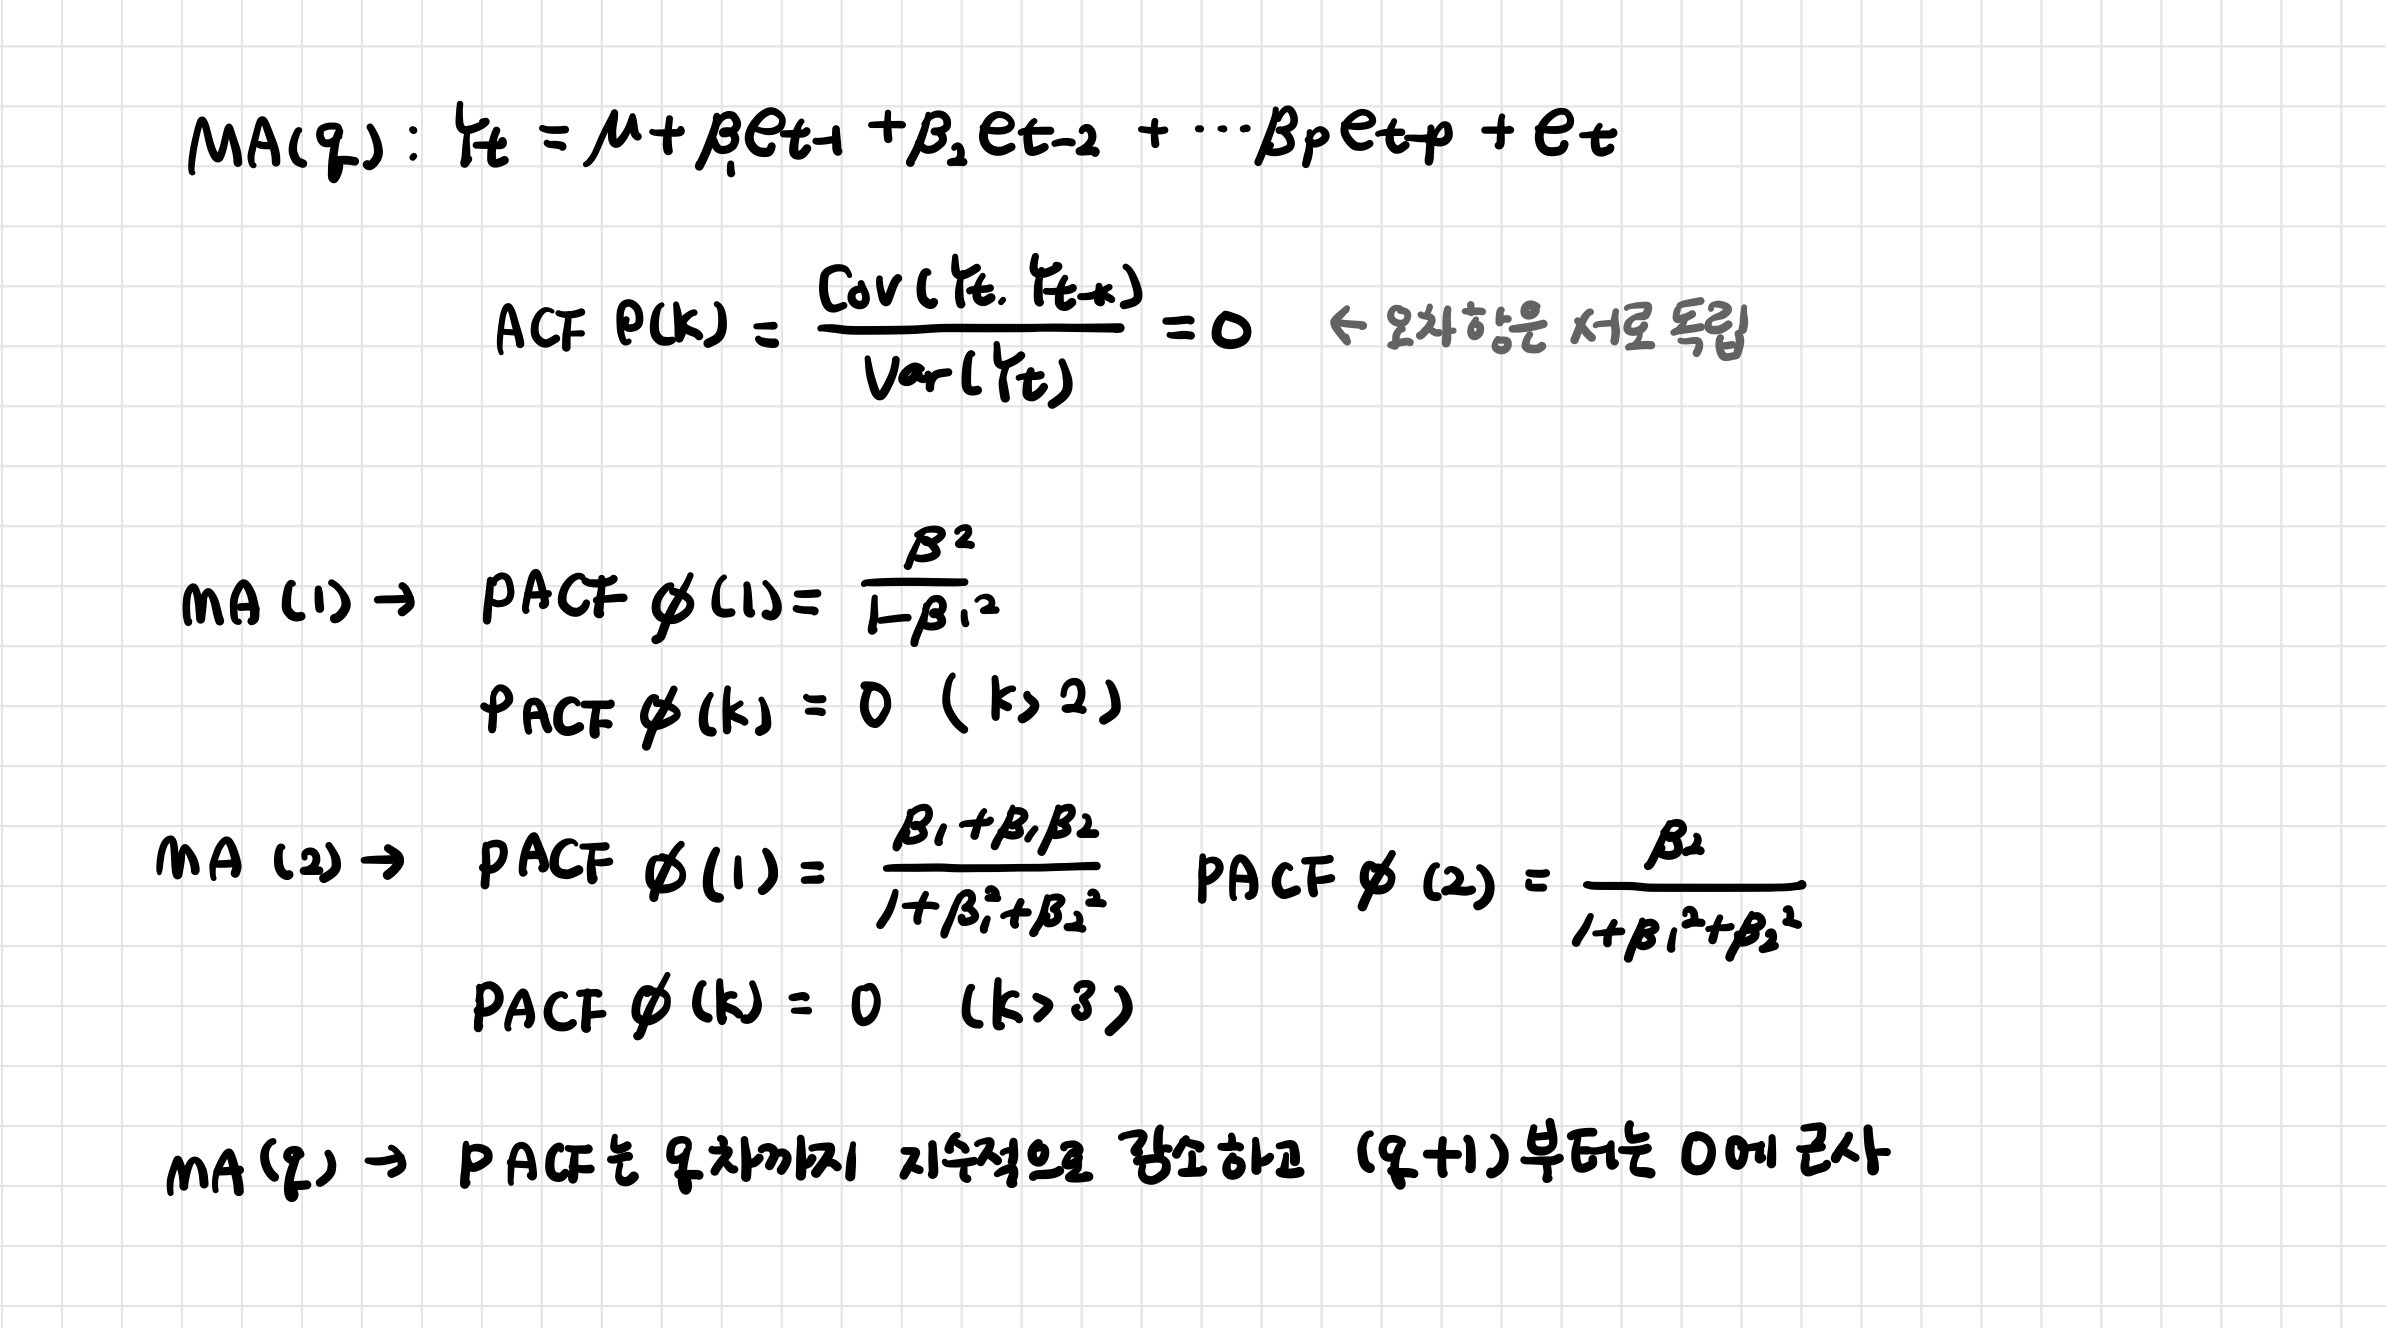 MA(q) : Yt = μ + β₁et-1 + β₂et-2 + ···βpet-p + et
ACF ρ(k) = Cov(Yt. Yt-k) / Var(Yt) = 0 ← 오차항은 서로 독립
MA(1) → PACF ∅(1) = β² / 1-β₁²
PACF ∅(k) = 0 (k>2)
MA(2) → PACF ∅(1) = β₁+β₁β₂ / 1+β₁²+β₂² PACF ∅(2) = β₂ / 1+β₁²+β₂²
PACF ∅(k) = 0 (k>3)
MA(q) → PACF는 q차까지 지수적으로 감소하고 (q+1)부터는 0에 근사